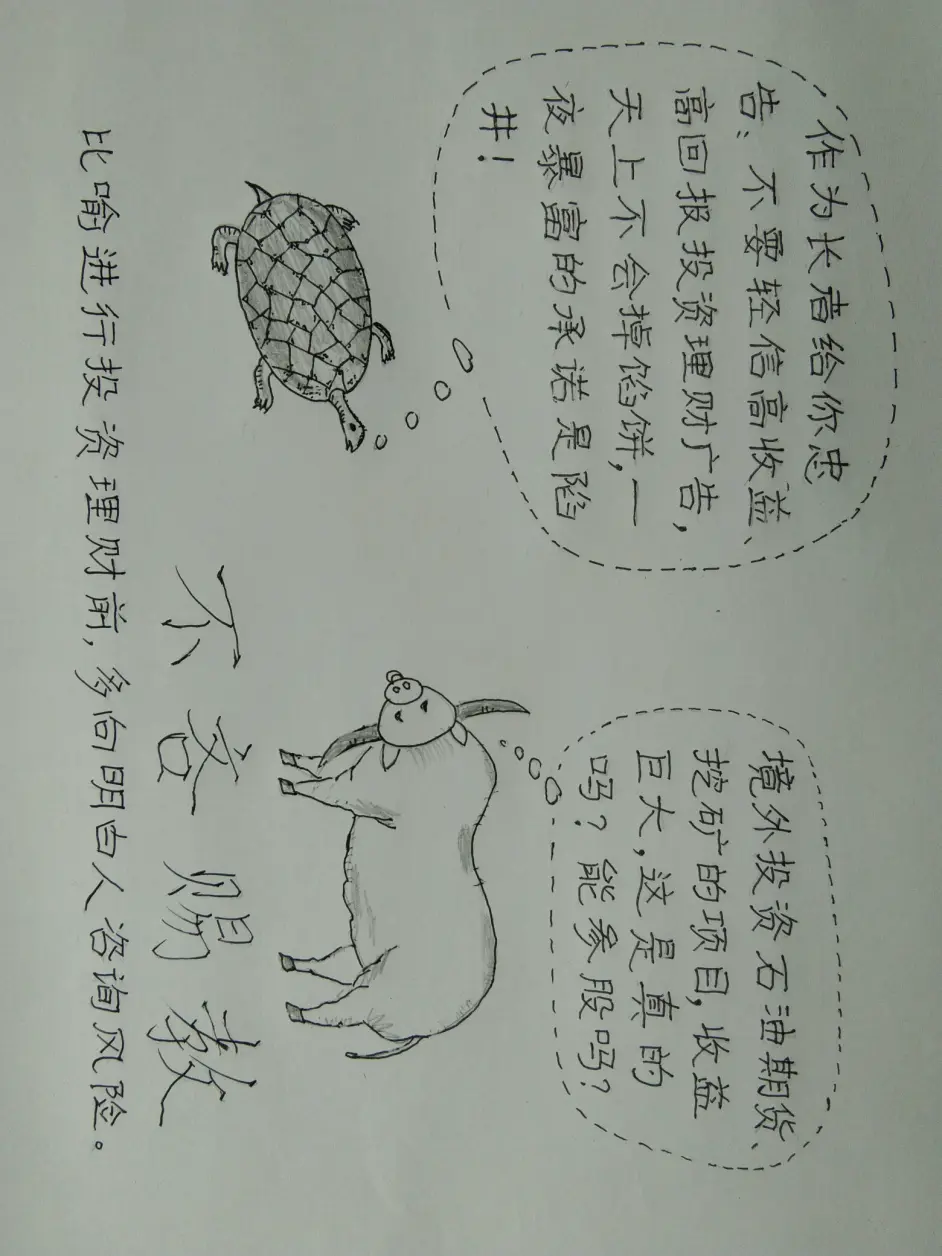 作为长者给你忠
告：不要轻信高收益、
高回报投资理财广告，
天上不会掉馅饼，一
夜暴富的承诺是陷
井！
境外投资石油期货、
挖矿的项目，收益
巨大，这是真的
吗？能参股吗？
不吝赐教
比喻进行投资理财前，多向明白人咨询风险。